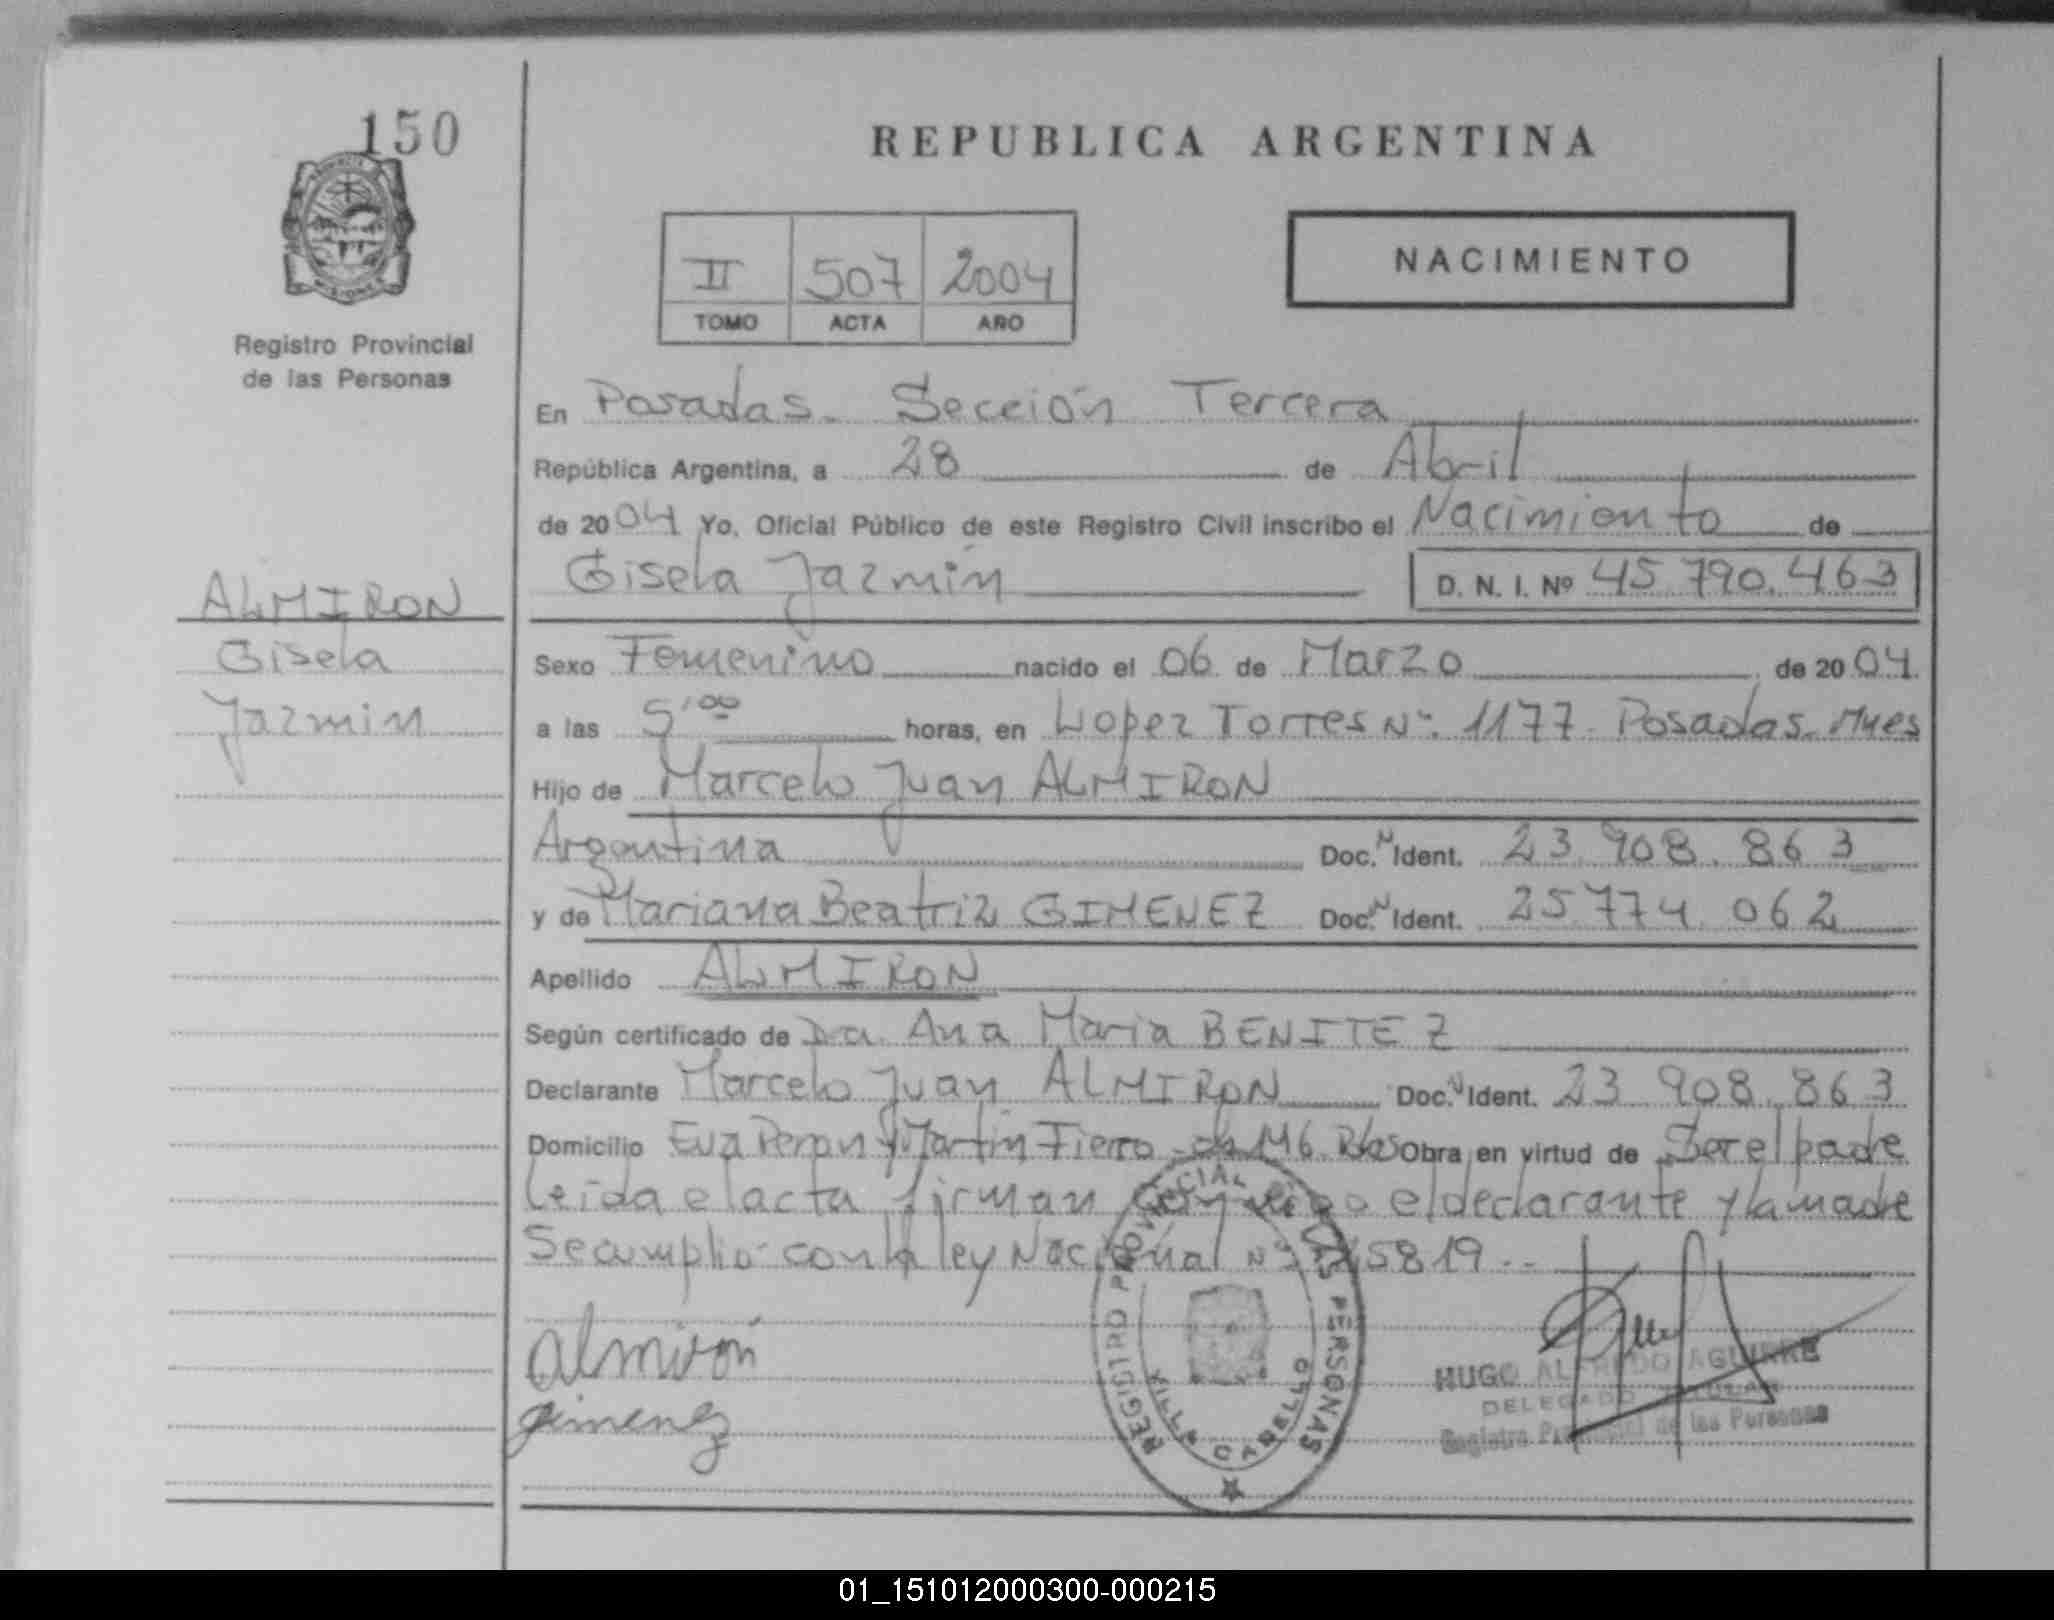 150
REPUBLICA ARGENTINA
MISIONES
Registro Provincial
de las Personas
II 507 2004
TOMO ACTA AÑO
NACIMIENTO
En Posadas. Sección Tercera
República Argentina, a 28 de Abril
de 2004 Yo, Oficial Público de este Registro Civil inscribo el Nacimiento de
Gisela Jazmín D. N. I. Nº 45.790.463
ALMIRON
Gisela
Jazmin
Sexo Femenino nacido el 06 de Marzo de 2004.
a las 5'00 horas, en Lopez Torres Nº: 1177. Posadas. Mnes
Hijo de Marcelo Juan ALMIRON
Argentina Doc. N Ident. 23.908.863
y de Mariana Beatriz GIMENEZ Doc. N Ident. 25.774.062
Apellido ALMIRON
Según certificado de Dra. Ana Maria BENITEZ
Declarante Marcelo Juan ALMIRON Doc. N Ident. 23.908.863
Domicilio Eva Peron y Martin Fierro 146 Obra en virtud de Ser el padre
Leída el acta firman el declarante y la madre
Se cumplio con la ley Nacional Nº 25819..
almirón
gimenez
REGISTRO PROVINCIAL DE LAS PERSONAS
VILLA CABELLO
HUGO ALFREDO AGUIRRE
DELEGADO TITULAR
Registro Provincial de las Personas
01_151012000300-000215